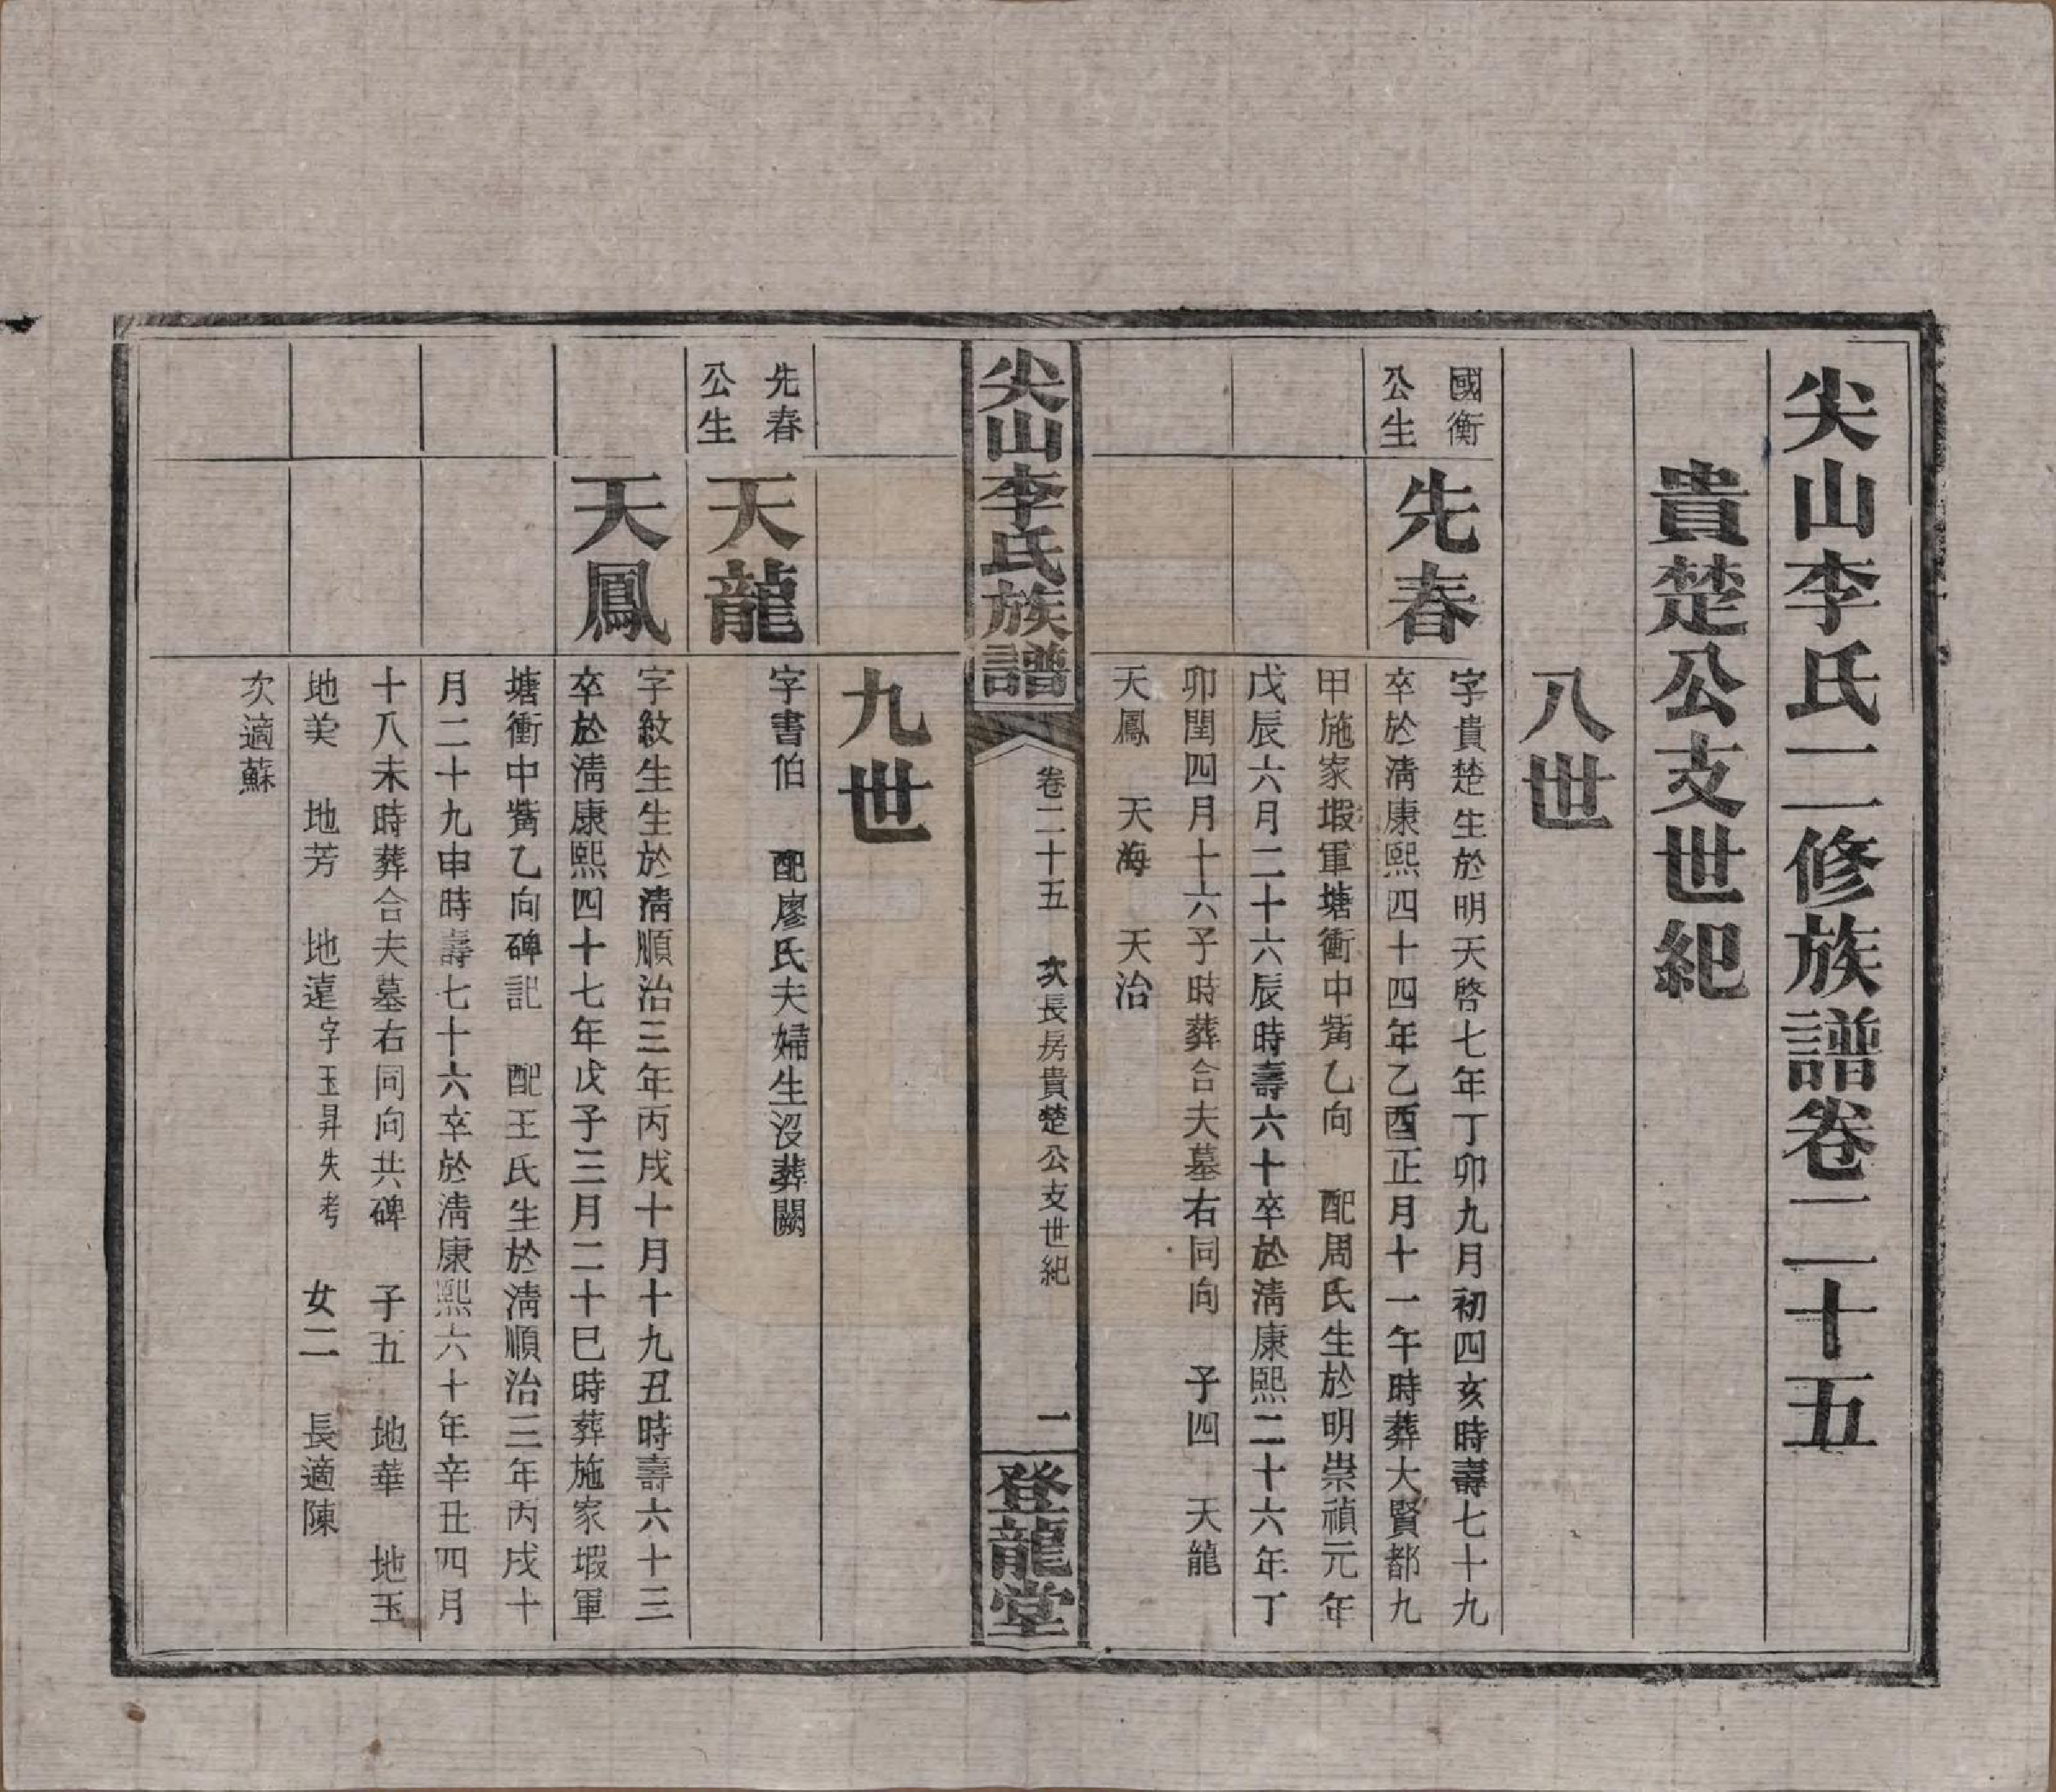 尖山李氏二修族譜卷二十五
貴楚公支世紀
八世
國衡
公生
先春
字貴楚生於明天啓七年丁卯九月初四亥時壽七十九
卒於清康熙四十四年乙酉正月十一午時葬大賢都九
甲施家塅軍塘衝中嘴乙向 配周氏生於明崇禎元年
戊辰六月二十六辰時壽六十卒於清康熙二十六年丁
卯閏四月十六子時葬合夫墓右同向 子四 天龍
天鳳 天海 天治
尖山李氏族譜
卷二十五 次長房貴楚公支世紀
二
登龍堂
九世
先春
公生
天龍
字書伯 配廖氏夫婦生沒葬闕
天鳳
字紋生生於清順治三年丙戌十月十九丑時壽六十三
卒於清康熙四十七年戊子三月二十巳時葬施家塅軍
塘衝中嘴乙向碑記 配王氏生於清順治三年丙戌十
月二十九申時壽七十六卒於清康熙六十年辛丑四月
十八未時葬合夫墓右同向共碑 子五 地華 地玉
地美 地芳 地遠字玉昇失考 女二 長適陳
次適蘇